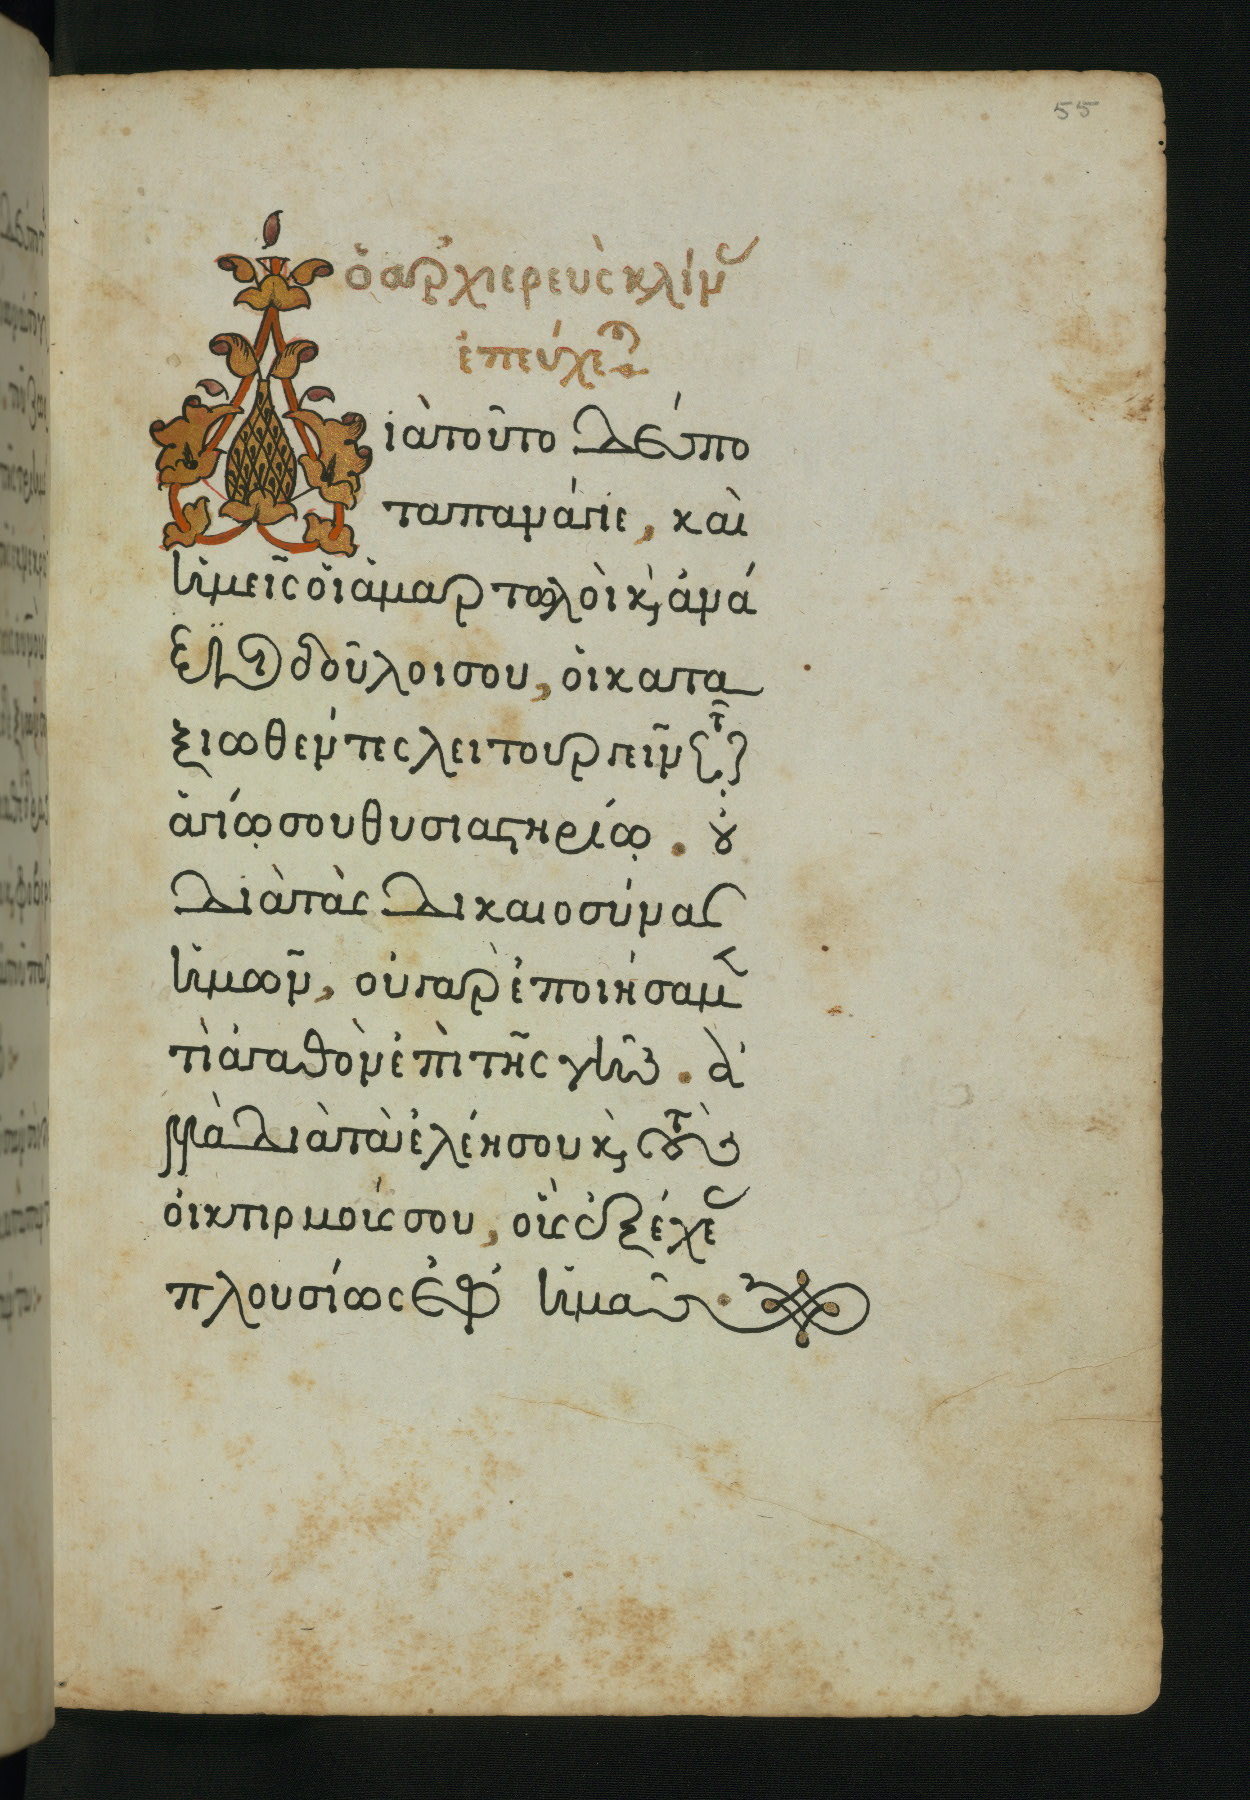 55
ὁ ἀρχιερεὺς κλίν
ἐπεύχεται
Διὰ τοῦτο δέσπο
τα πανάγιε, καὶ
ἡμεῖς οἱ ἁμαρτωλοὶ κ, ἀνά
ξιοι δοῦλοι σου, οἱ κατα
ξιωθέντες λειτουργεῖν τῷ
ἁγίῳ σου θυσιαστηρίῳ. οὐ
διὰ τὰς δικαιοσύνας
ἡμῶν, οὐ γὰρ ἐποιήσαμέν
τι ἀγαθὸν ἐπὶ τῆς γῆς. ἀλ
λὰ διὰ τὰ ἐλέη σου κ, τοὺς
οἰκτιρμούς σου, οὓς ἐξέχεας
πλουσίως ἐφ ἡμᾶς.